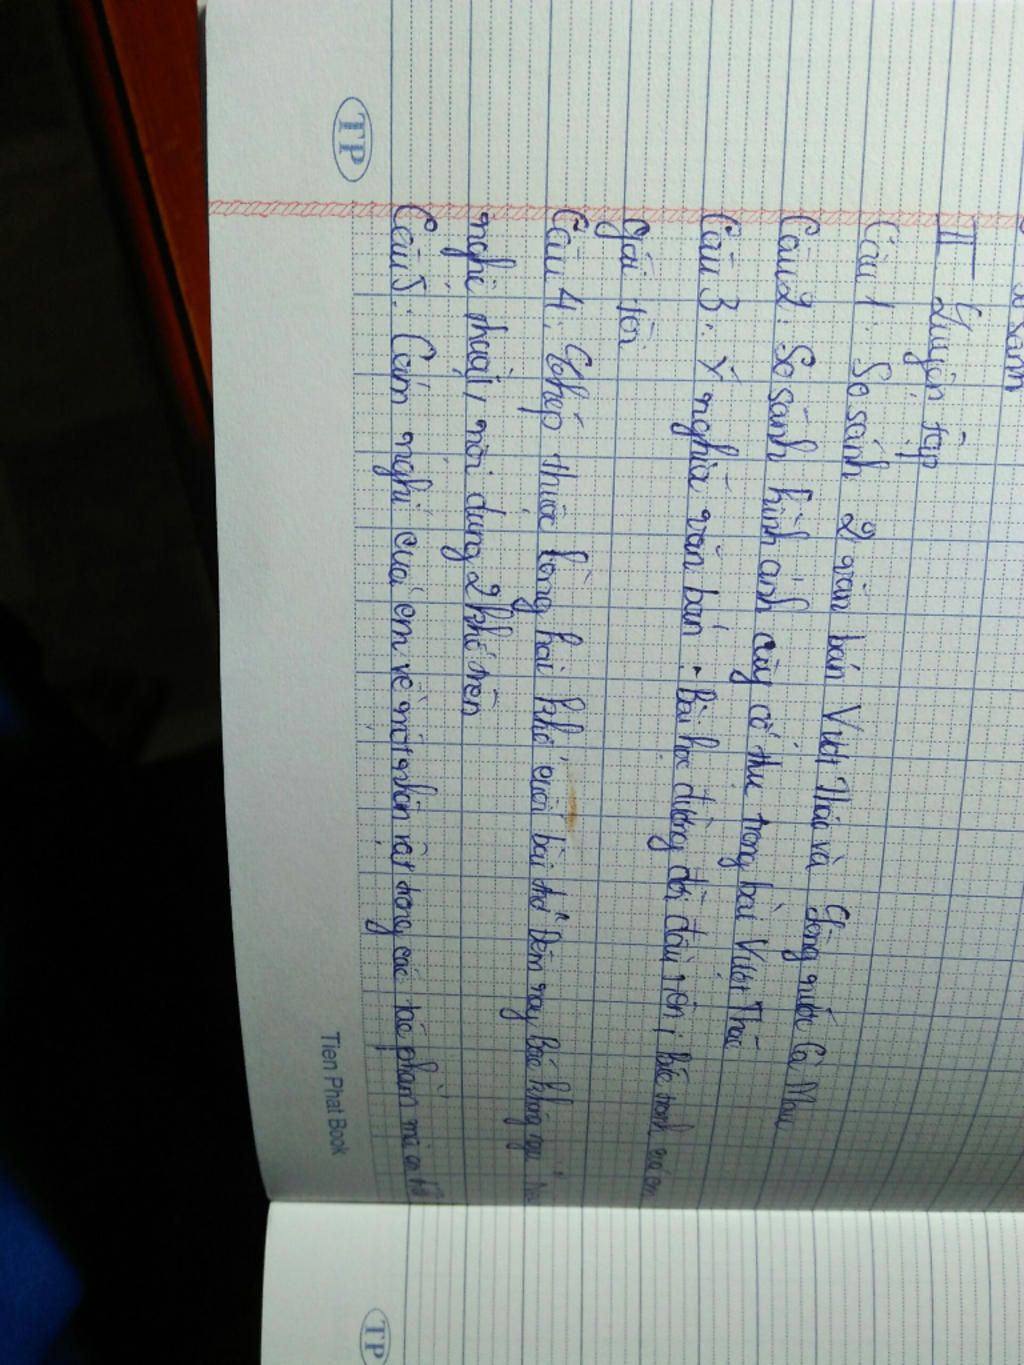 so sánh
II Luyện tập
Câu 1: So sánh 2 văn bản Vượt Thác và Sông nước Cà Mau
Câu 2: So sánh hình ảnh cây cổ thụ trong bài Vượt Thác
Câu 3: Ý nghĩa văn bản - Bài học đường đời đầu tiên, bức tranh của em
gái tôi
Câu 4: Chép thuộc lòng hai khổ cuối bài thơ Đêm nay Bác không ngủ
nghệ thuật, nội dung 2 khổ trên
Câu 5: Cảm nghĩ của em về một nhân vật trong các tác phẩm mà
TP
Tien Phat Book
TP